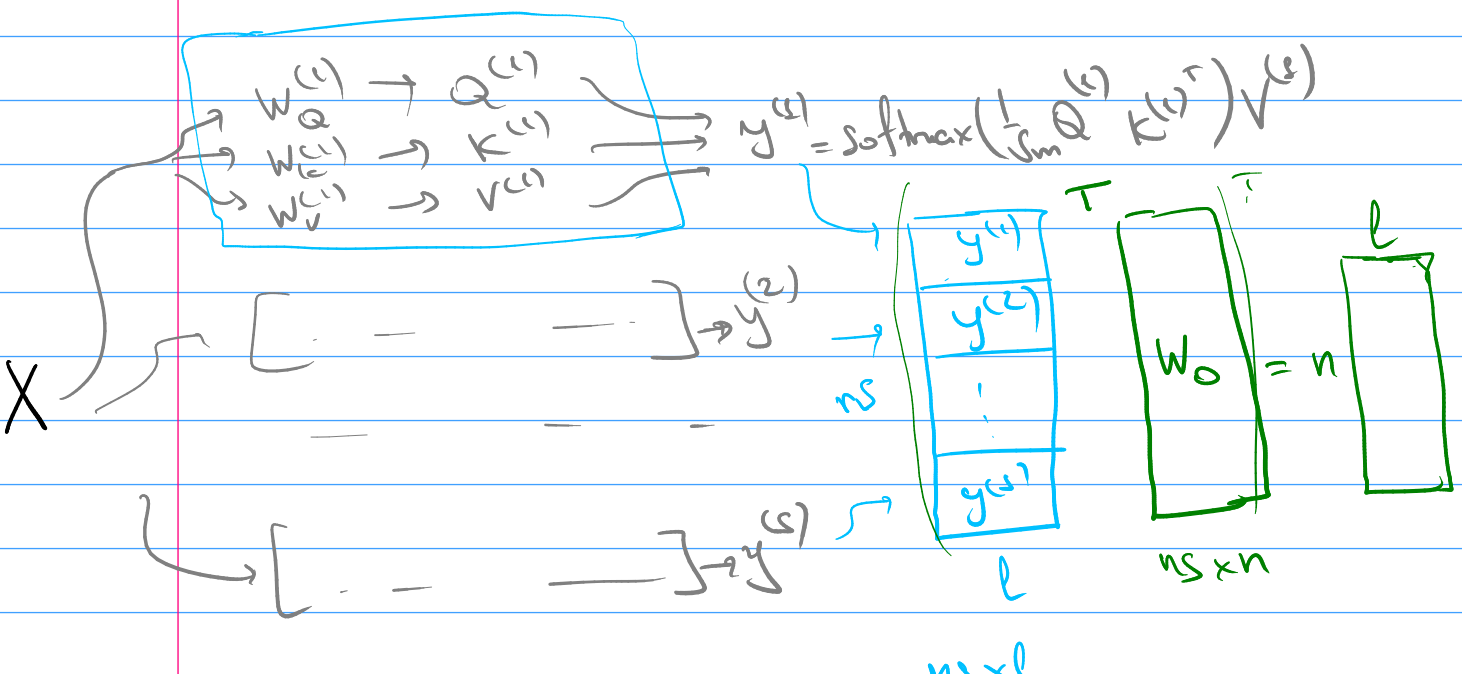 W_Q^(1) → Q^(1)
W_K^(1) → K^(1)
W_V^(1) → V^(1)
y^(1) = softmax(1/√m Q^(1) K^(1)^T) V^(1)
X
[ — — ] → y^(2)
— — —
[ . — — ] → y^(s)
( y^(1)
y^(2)
⋮
y^(s)
ns
l
T
W_O
)^T
ns × n
= n
l
ns × l